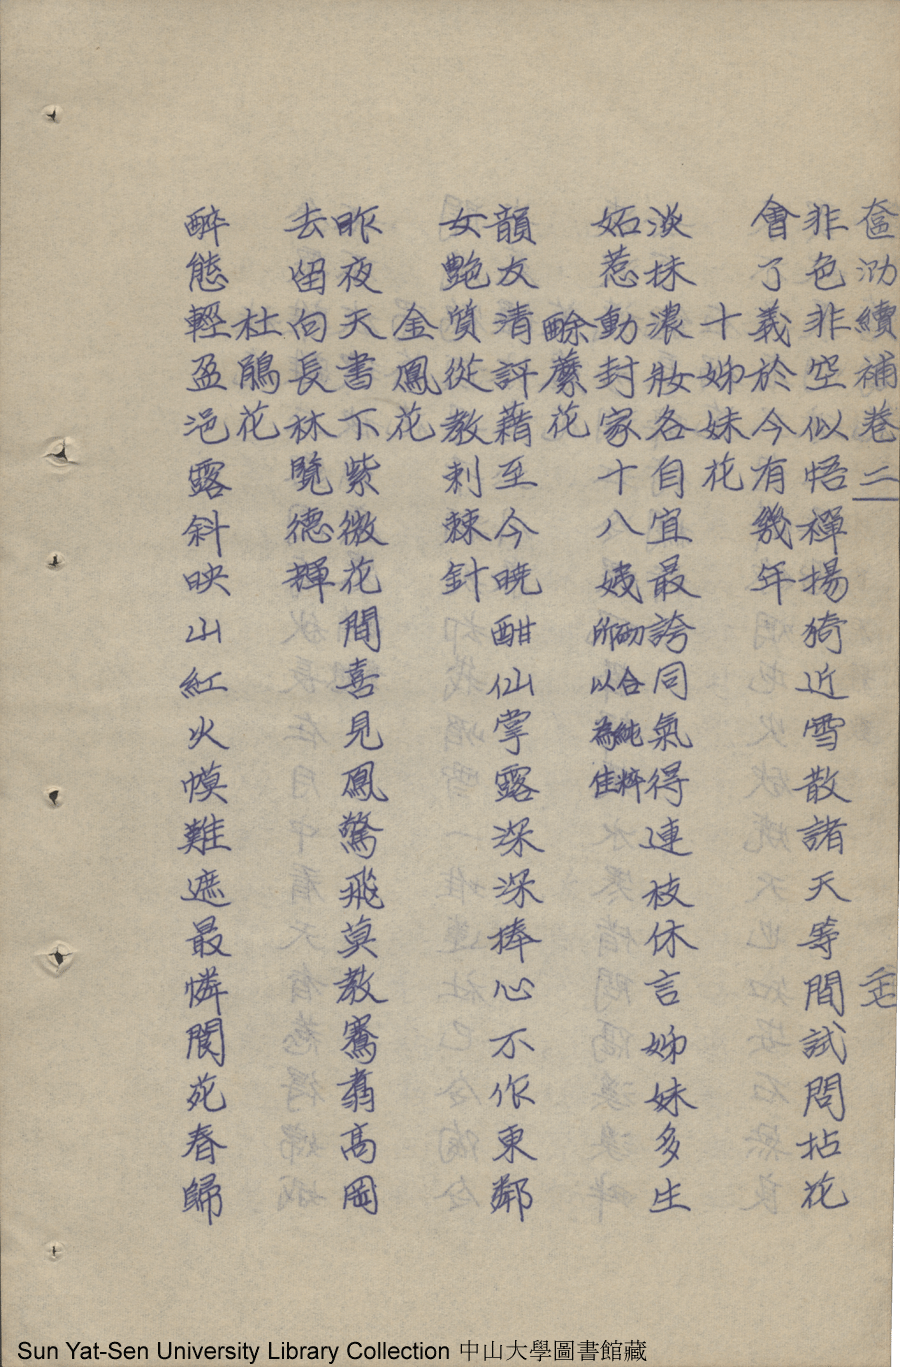 奩泐續補卷二 五
非色非空似悟禪揚猗近雪散諸天等閒試問拈花
會了義於今有幾年
十姊妹花
淡抹濃妝各自宜最誇同氣得連枝休言姊妹多生
妬惹動封家十八姨
砌合純粹
所以為佳
酴蘪花
韻友清評藉至今曉酣仙掌露深深捧心不作東鄰
女艷質從教刺棘針
金鳳花
昨夜天書下紫微花間喜見鳳驚飛莫教騫翥高岡
去留向長林覽德輝
杜鵑花
醉態輕盈浥露斜映山紅火幙難遮最憐閬苑春歸
Sun Yat-Sen University Library Collection 中山大學圖書館藏